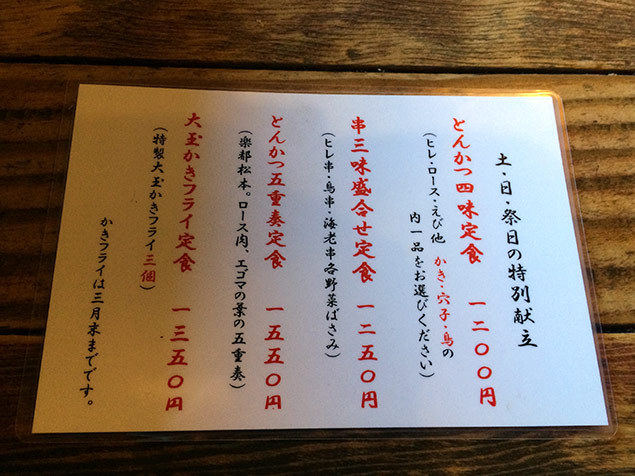 土・日・祭日の特別献立
とんかつ四味定食 一二〇〇円
(ヒレ・ロース・えび他 かき・穴子・鳥の
内一品をお選びください)
串三味盛合せ定食 一二五〇円
(ヒレ串・鳥串・海老串各野菜ばさみ)
とんかつ五重奏定食 一五五〇円
(楽都松本。ロース肉、エゴマの葉の五重奏)
大玉かきフライ定食 一三五〇円
(特製大玉かきフライ三個)
かきフライは三月末までです。